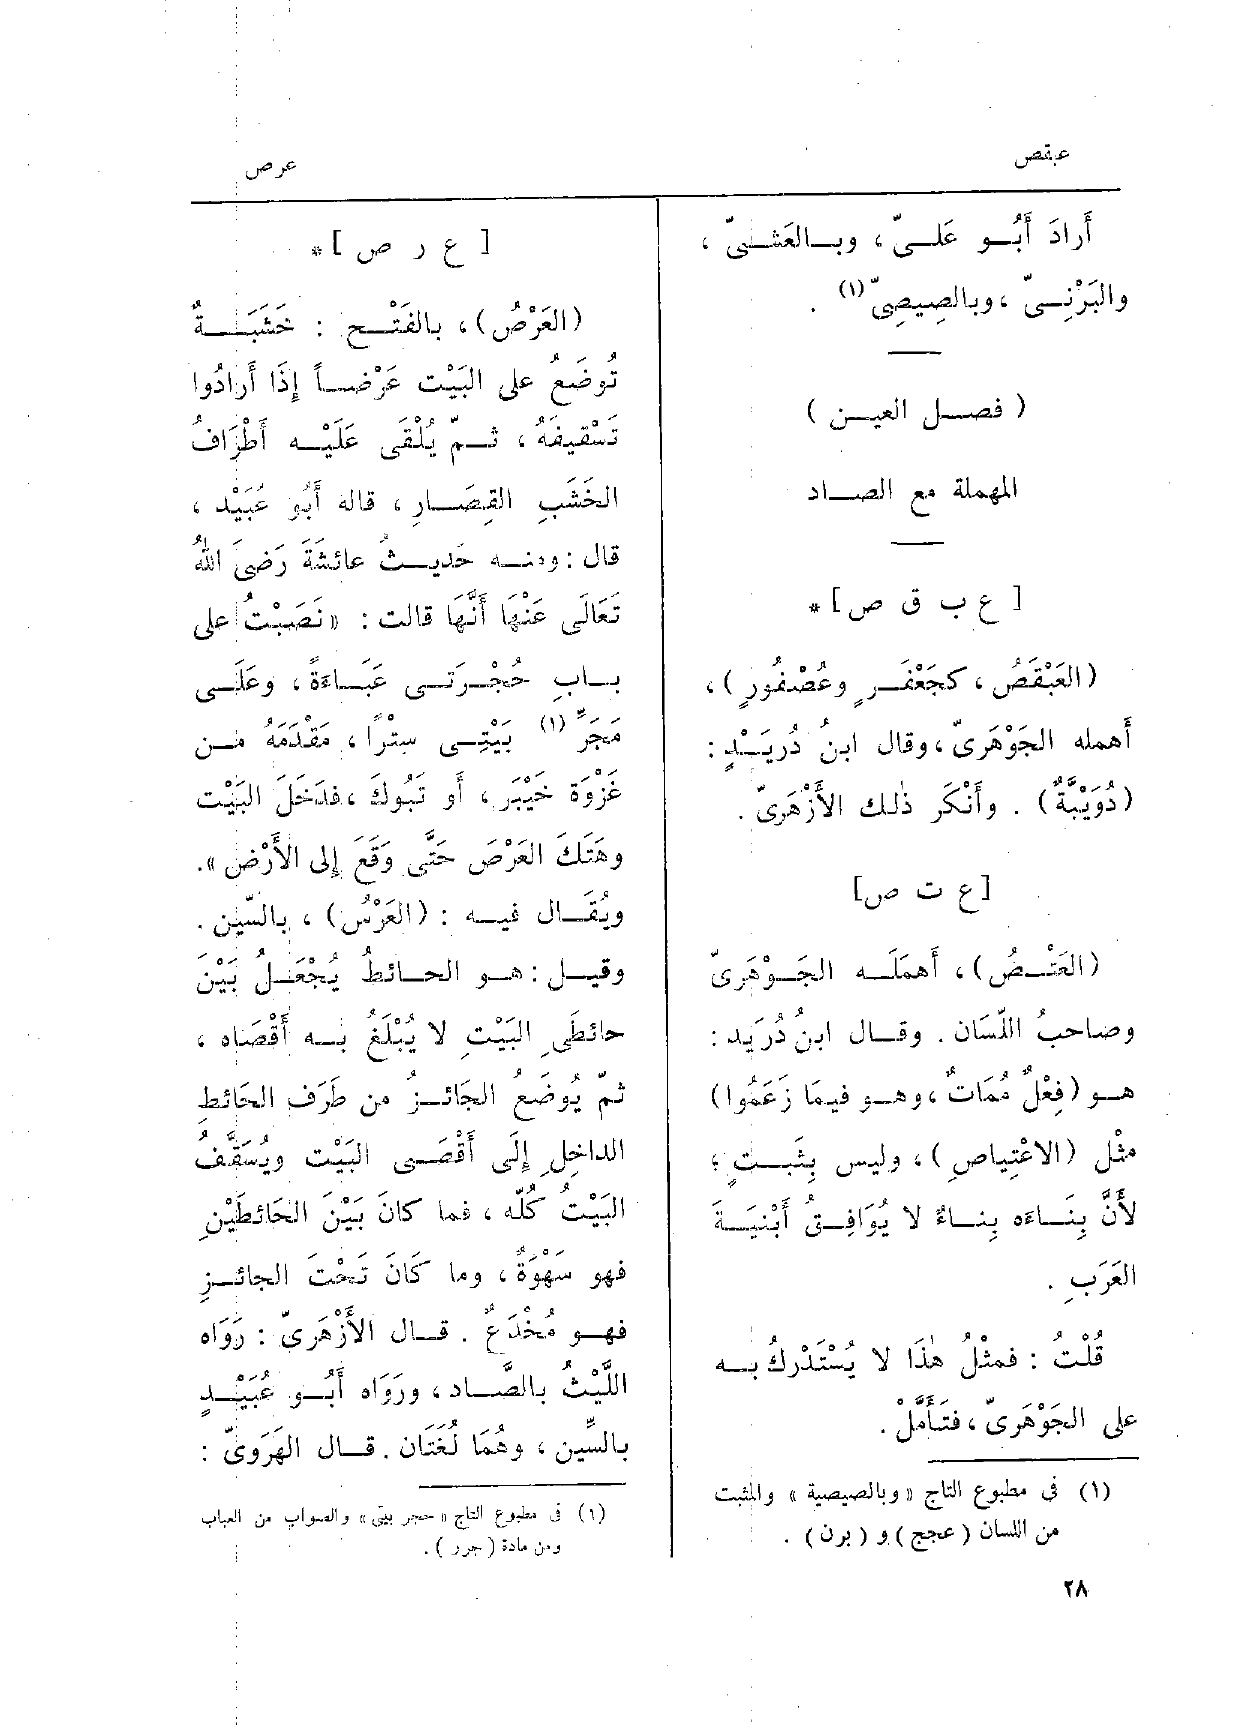 عبقص
عرص
أَرادَ أَبُو عَلىّ ، وبالعَشىّ ،
والبَرْنِىّ ، وبالصِيصِىّ (١) .
( فصل العين )
المهملة مع الصاد
[ ع ب ق ص ] *
(العَبْقَصُ ، كجَعْفَرٍ وعُصْفُورٍ ) ،
أَهمله الجَوْهَرىّ ، وقال ابنُ دُرَيْدٍ :
(دُوَيْبَّةٌ) . وأَنْكَر ذٰلك الأَزْهَرىّ .
[ع ت ص]
(العَتْصُ) ، أَهمَلَه الجَوْهَرىّ
وصاحبُ اللّسَان . وقال ابنُ دُرَيد :
هو (فِعْلٌ مُمَاتٌ ، وهو فيمَا زَعَمُوا)
مثْل (الاعْتِياصِ ) ، وليس بِثَبتٍ ،
لأَنَّ بِنَاءَه بِناءٌ لا يُوَافِقُ أَبْنيَةَ
العَرَبِ .
قُلْتُ : فمثْلُ هٰذا لا يُسْتَدْرَكُ به
على الجَوْهَرىّ ، فتَأَمَّلْ .
(١) فى مطبوع التاج «وبالصيصية » والمثبت
من اللسان (عجج) و (برن) .
٢٨
[ ع ر ص ] *
(العَرْصُ) ، بالفَتْح : خَشَبَةٌ
تُوضَعُ على البَيْت عَرْضاً إِذَا أَرادُوا
تَسْقِيفَهُ ، ثمّ يُلْقَى عَلَيْه أَطْرَافُ
الخَشَبِ القِصَارِ ، قاله أَبُو عُبَيْد ،
قال : ومنه حَديثُ عائشَةَ رَضىَ اللهُ
تَعَالَى عَنْهَا أَنَّهَا قالت : « نَصَبْتُ على
بابِ حُجْرَتى عَبَاءَةً ، وعَلَى
مَجَرِّ (١) بَيْتِى سِتْراً ، مَقْدَمَهُ من
غَزْوَة خَيْبَر ، أَو تَبُوكَ ، فدَخَلَ البَيْت
وهَتَكَ العَرْصَ حَتَّى وَقَعَ إِلى الأَرْض ».
ويُقَال فيه : (العَرْسُ) ، بالسّين .
وقيل : هو الحائطُ يُجْعَلُ بَيْنَ
حائطَىِ البَيْتِ لا يُبْلَغُ به أَقْصَاه ،
ثمّ يُوضَعُ الجَائزُ من طَرَفِ الحَائطِ
الداخِلِ إِلَى أَقْصَى البَيْت ويُسَقَّفُ
البَيْتُ كُلّه ، فما كانَ بَيْنَ الحَائطَيْنِ
فهو سَهْوَةٌ ، وما كَانَ تَحْتَ الجائزِ
فهو مُخْدَعٌ . قال الأَزْهَرىّ : رَوَاه
اللَّيْثُ بالصَّاد ، ورَوَاه أَبُو عُبَيْدٍ
بالسِّين ، وهُمَا لُغَتَان . قال الهَرَوىّ :
(١) فى مطبوع التاج « حجر بيتى» والصواب من العباب
ومن مادة (جرر ) .